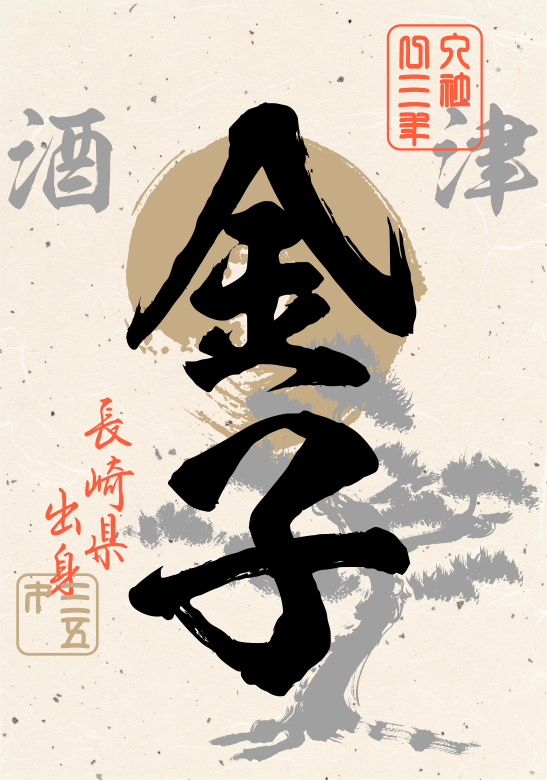 津
金子
酒
長崎県
出身